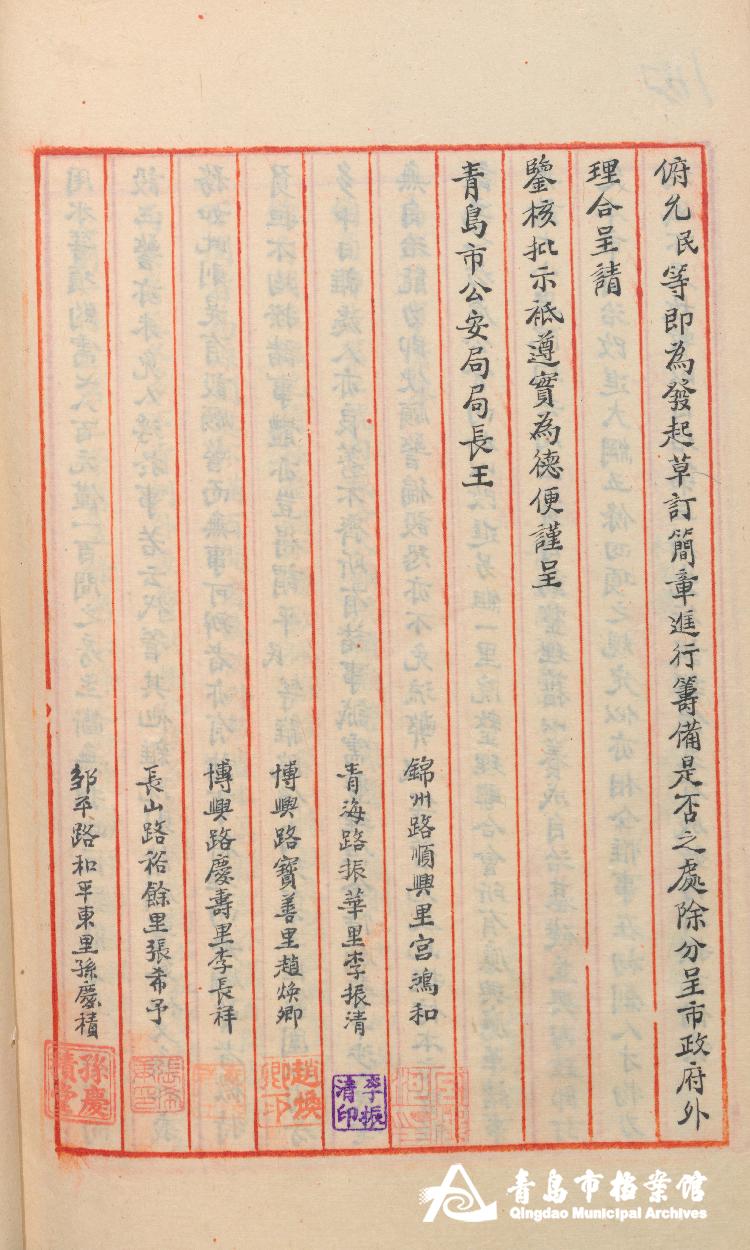 俯允民等即為發起草訂簡章進行籌備是否之處除分呈市政府外
理合呈請
鑒核批示祗遵實為德便謹呈
青島市公安局局長王
錦州路順興里宮鴻和
青海路振華里李振清
李振清印
博興路寶善里趙煥卿
趙煥卿印
博興路慶壽里李長祥
長山路裕餘里張希予
鄒平路和平東里孫慶積
孫慶積
青島市檔案館
Qingdao Municipal Archives